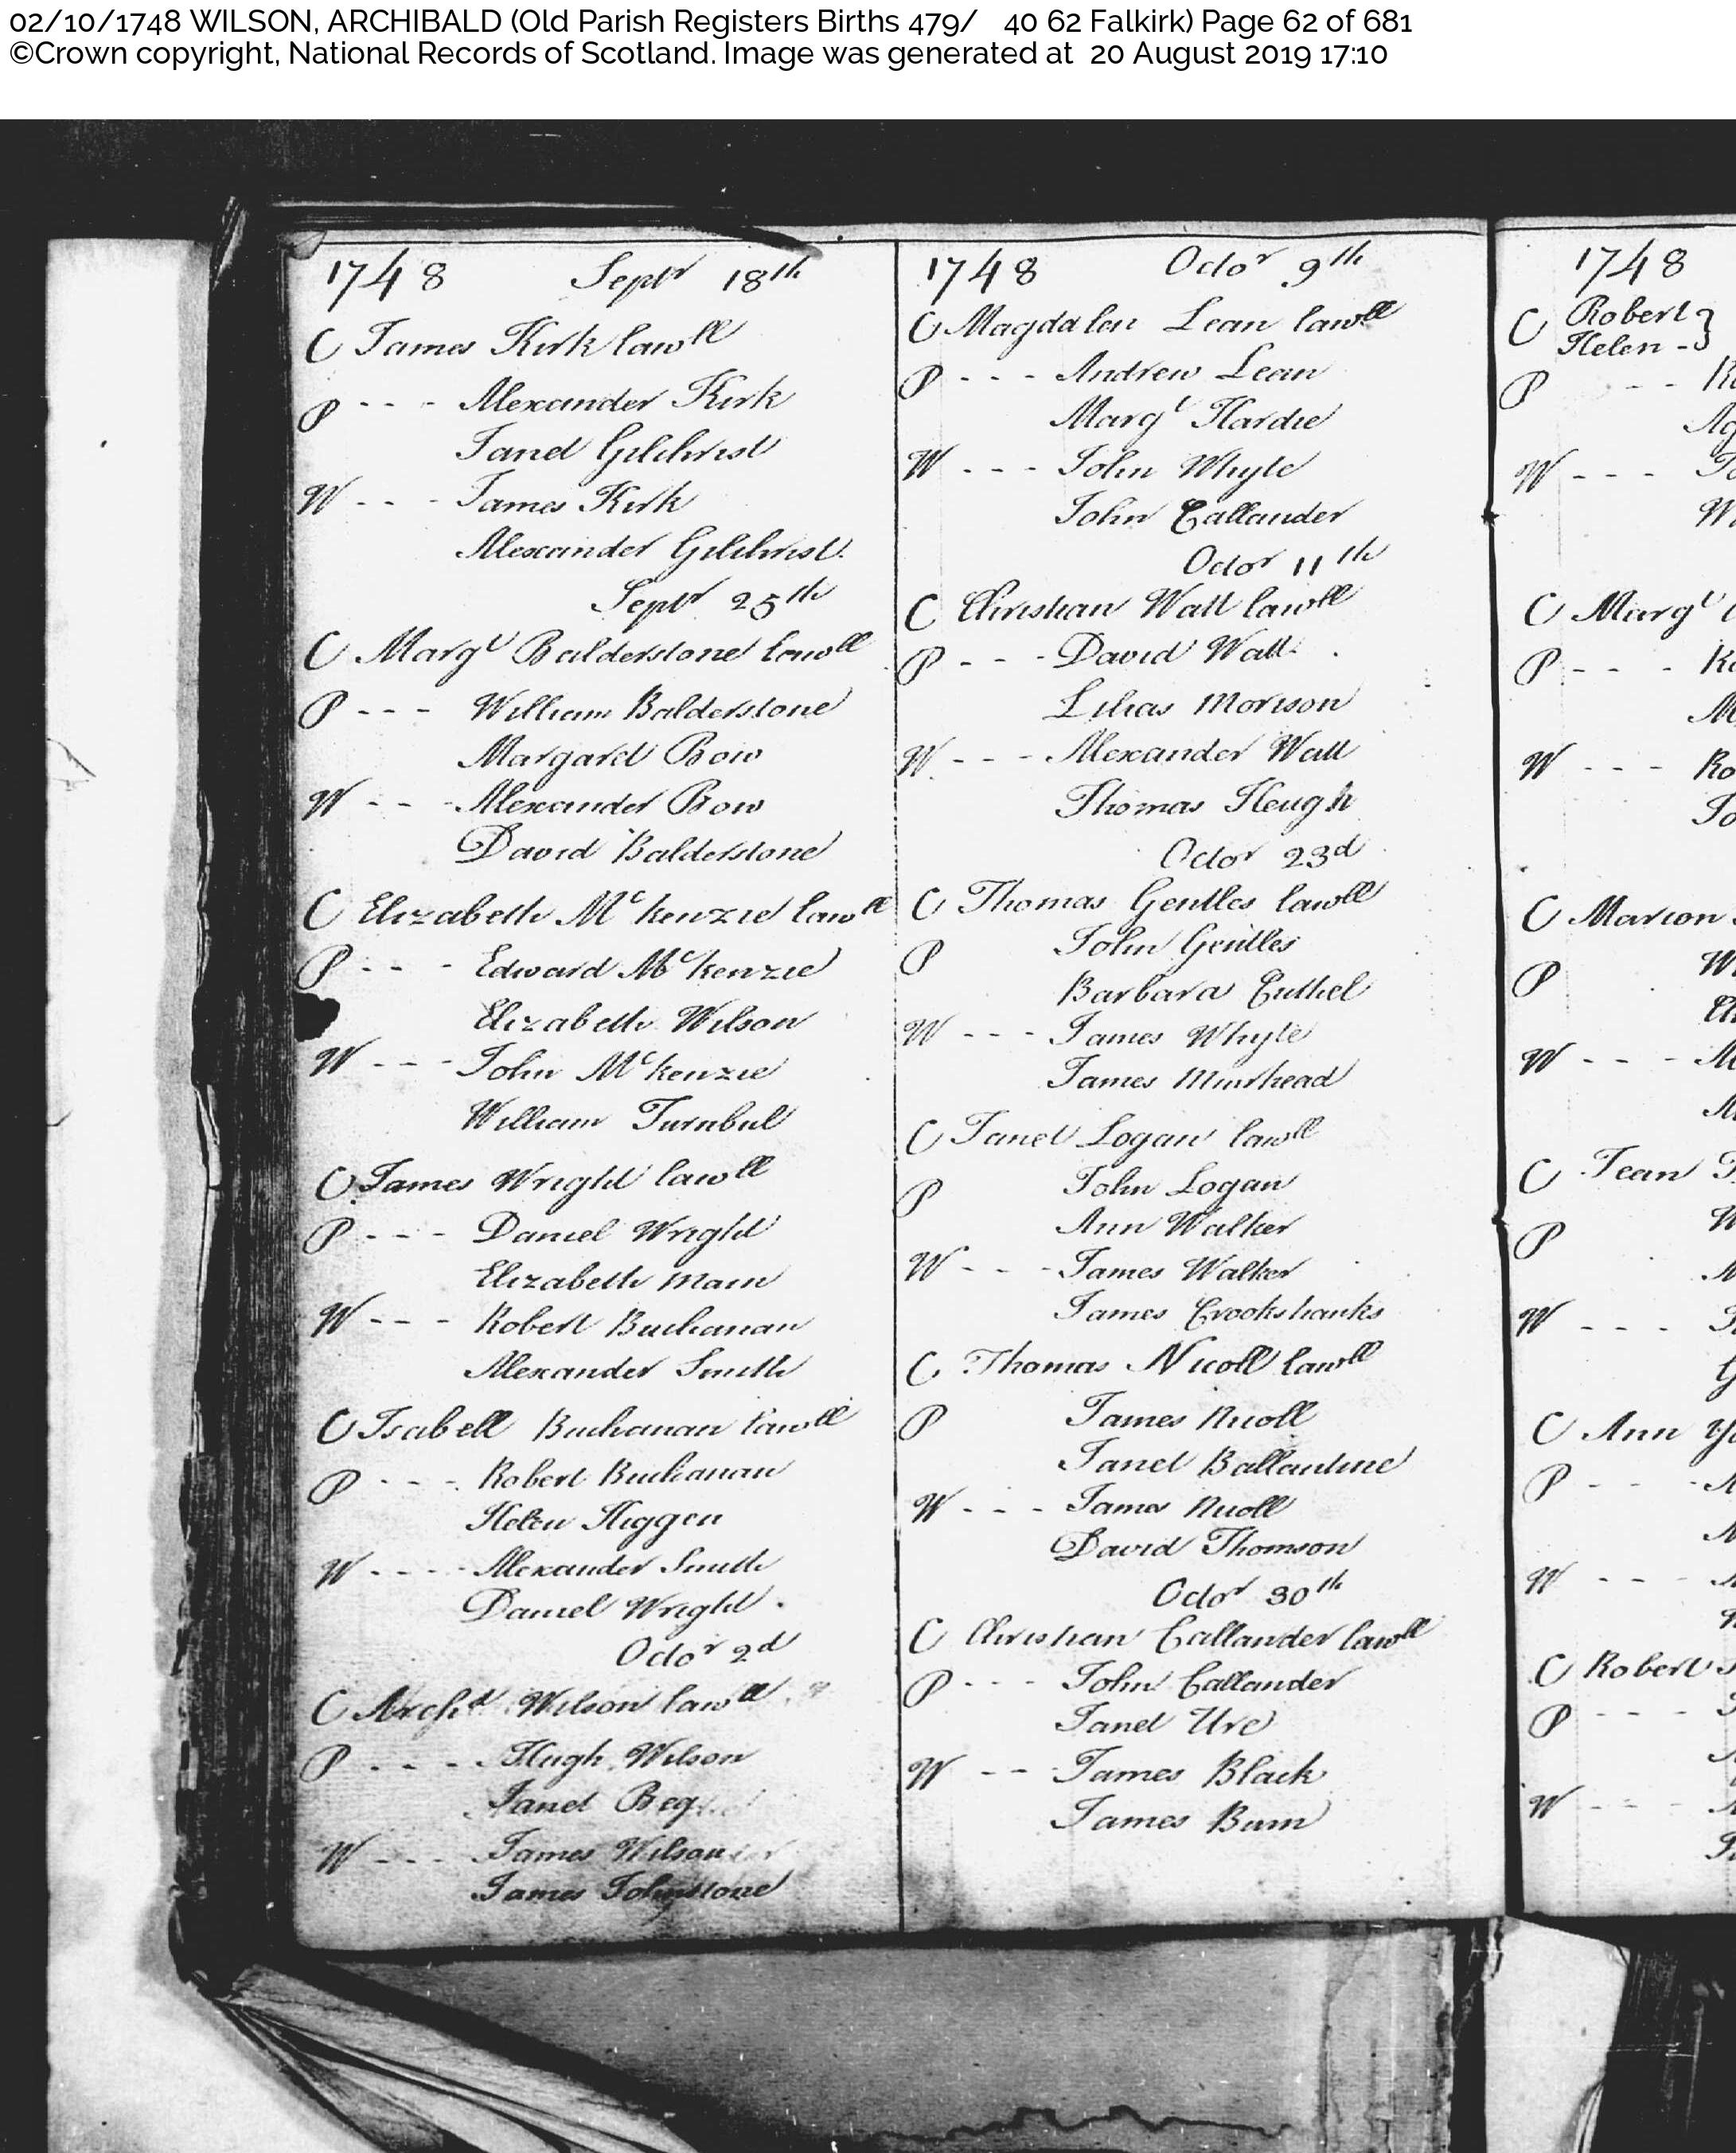 02/10/1748 WILSON, ARCHIBALD (Old Parish Registers Births 479/ 40 62 Falkirk) Page 62 of 681
©Crown copyright, National Records of Scotland. Image was generated at 20 August 2019 17:10
1748 Septr 18th
C James Kirk lawll
P - - - Alexander Kirk
Janet Gilchrist
W - - - James Kirk
Alexander Gilchrist.
Septr 25th
C Margt Balderstone lawll
P - - - William Balderstone
Margaret Bow
W - - - Alexander Bow
David Balderstone
C Elizabeth Mckenzie lawll
P - - - Edward Mckenzie
Elizabeth Wilson
W - - - John Mckenzie
William Turnbul
C James Wright lawll
P - - - Daniel Wright
Elizabeth Main
W - - - Robert Buchanan
Alexander Smith
C Isabell Buchanan lawll
P - - - Robert Buchanan
Helen Higgen
W - - - - Alexander Smith
Daniel Wright.
Octor 2d
C Archd Wilson lawll
P - - - - Hugh Wilson
Janet Beg
W - - - James Wilson
James Johnstone
1748 Octor 9th
C Magdalen Lean lawll
P - - - Andrew Lean
Margt Hardie
W - - - John Whyte
John Callander
Octor 11th
C Christian Watt lawll
P - - - David Watt
Lilias Morison
W - - - Alexander Watt
Thomas Heugh
Octor 23d
C Thomas Gentles lawll
P John Gentles
Barbara Cuthel
W - - - James Whyte
James Muirhead
C Janet Logan lawll
P John Logan
Ann Walker
W - - - James Walker
James Crookshanks
C Thomas Nicoll lawll
P James Nicoll
Janet Ballantine
W - - - James Nicoll
David Thomson
Octor 30th
C Christian Callander lawll
P - - - John Callander
Janet Ure
W - - James Black
James Burn
1748
C Robert }
Helen - }
P - -
W - - -
C Margt
P - - -
W - - - Ro
C Marion
P
W - - -
C Jean
P
W - - -
C Ann
P - - -
W - - -
C Robert
P - - -
W - - -